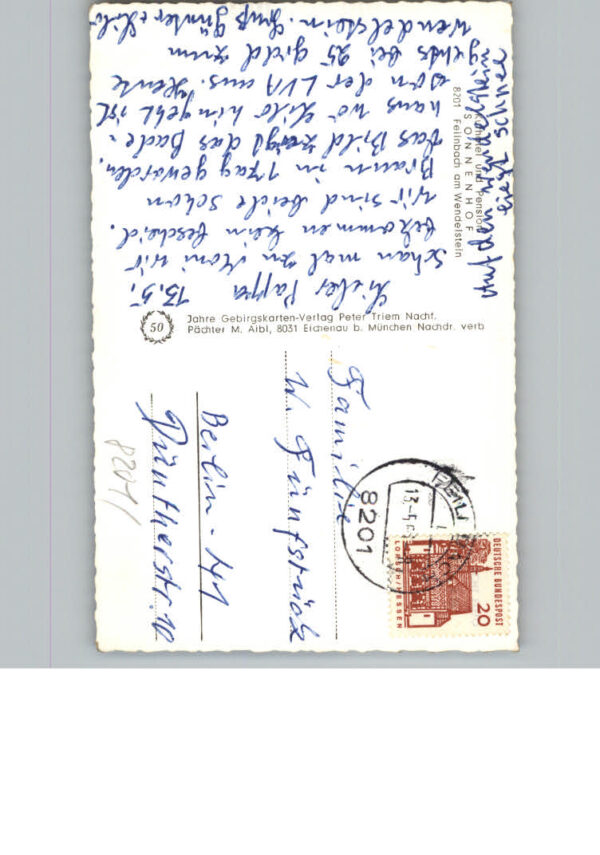 Kurheim und Pension
SONNENHOF
8201 Feilnbach am Wendelstein
13.5.
Lieber Pappa
Schau mal zu Moni wir
bekommen kein Bescheid.
Wir sind beide schon
Braun in 1 Tag geworden.
Das Bild zeigt das Bade-
haus wo Lilo hingeht ist
von der LVA aus. Heute
gehts bei 25 grad zum
Wendelstein. Gruß Günter + Lilo
Auf dem Wendelstein
liegt Schnee
50 Jahre Gebirgskarten-Verlag Peter Triem Nachf.
Pächter M. Aibl, 8031 Eichenau b. München Nachdr. verb
Familie
W. Fünfstück
Berlin-41
Düntherstr. 10
8201/
8201
13.-5.6
DEUTSCHE BUNDESPOST
20
LORSCH/HESSEN